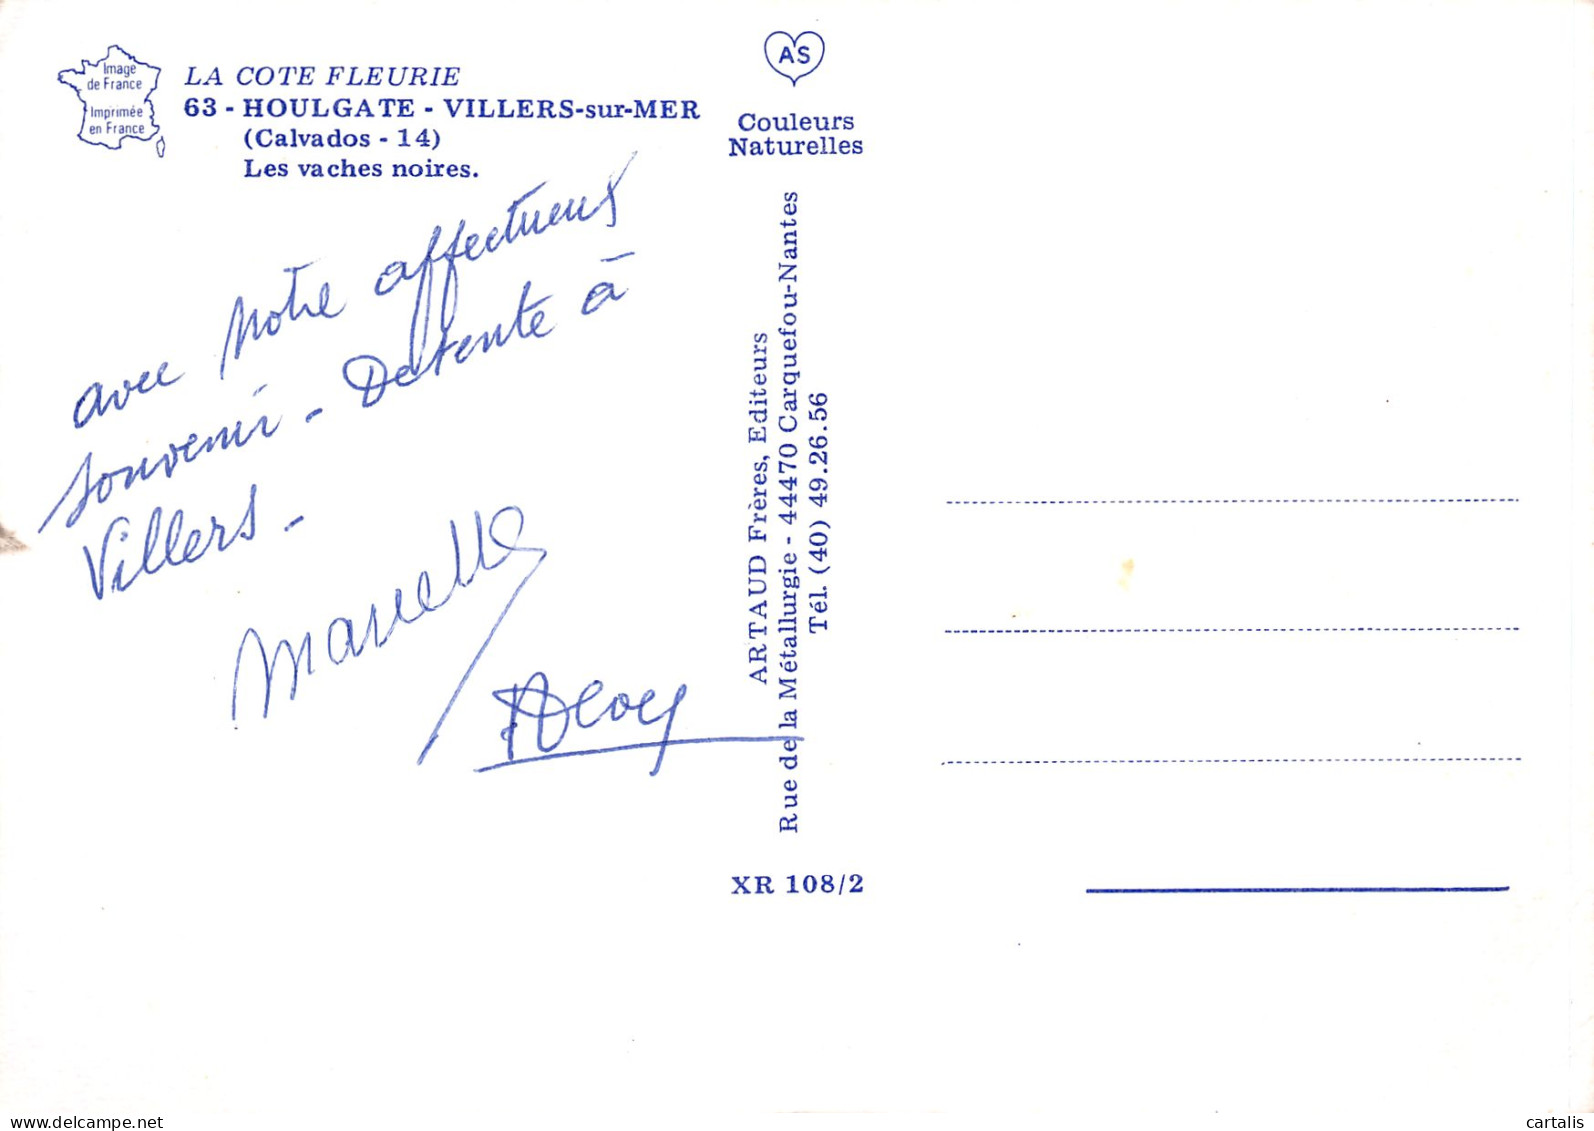 Image
de France
Imprimée
en France
LA COTE FLEURIE
63 - HOULGATE - VILLERS-sur-MER
(Calvados - 14)
Les vaches noires.
avec notre affectueux
souvenir - Detente à
Villers -
Marcelle
AS
Couleurs
Naturelles
ARTAUD Frères, Editeurs
Rue de la Métallurgie - 44470 Carquefou-Nantes
Tél. (40) 49.26.56
XR 108/2
delcampe.net
cartalis